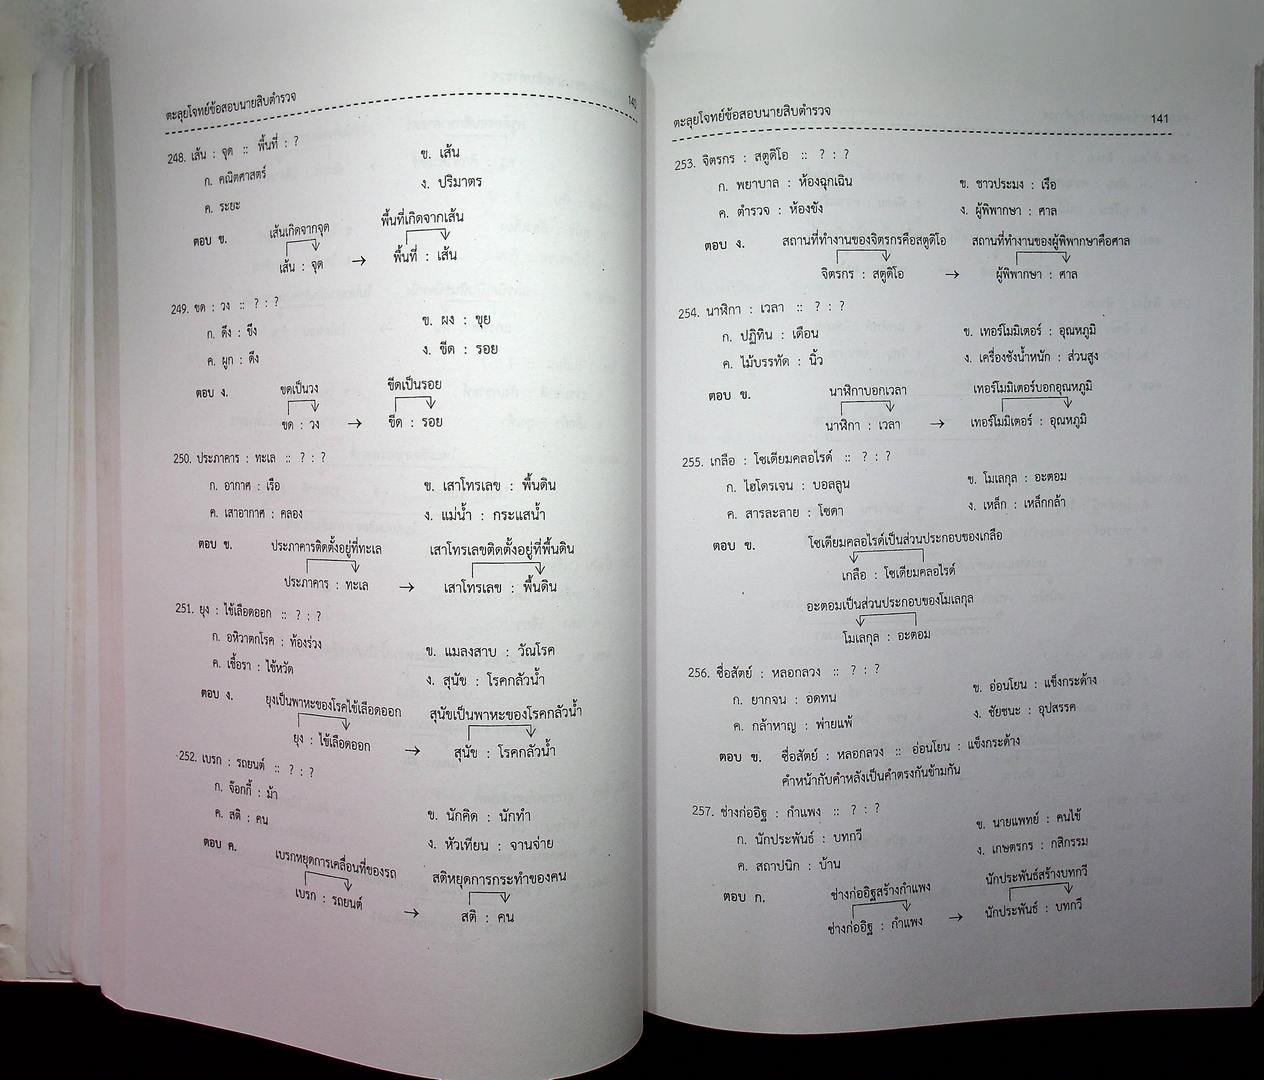 ตะลุยโจทย์ข้อสอบนายสิบตำรวจ 140
248. เส้น : จุด :: พื้นที่ : ?
ก. คณิตศาสตร์ ข. เส้น
ค. ระยะ ง. ปริมาตร
ตอบ ข. เส้นเกิดจากจุด พื้นที่เกิดจากเส้น
เส้น : จุด → พื้นที่ : เส้น
249. ขด : วง :: ? : ?
ก. ดึง : ขึง ข. ผง : ชุย
ค. ผูก : ดึง ง. ขีด : รอย
ตอบ ง. ขดเป็นวง ขีดเป็นรอย
ขด : วง → ขีด : รอย
250. ประภาคาร : ทะเล :: ? : ?
ก. อากาศ : เรือ ข. เสาโทรเลข : พื้นดิน
ค. เสาอากาศ : คลอง ง. แม่น้ำ : กระแสน้ำ
ตอบ ข. ประภาคารติดตั้งอยู่ที่ทะเล เสาโทรเลขติดตั้งอยู่ที่พื้นดิน
ประภาคาร : ทะเล → เสาโทรเลข : พื้นดิน
251. ยุง : ไข้เลือดออก :: ? : ?
ก. อหิวาตกโรค : ท้องร่วง ข. แมลงสาบ : วัณโรค
ค. เชื้อรา : ไข้หวัด ง. สุนัข : โรคกลัวน้ำ
ตอบ ง. ยุงเป็นพาหะของโรคไข้เลือดออก สุนัขเป็นพาหะของโรคกลัวน้ำ
ยุง : ไข้เลือดออก → สุนัข : โรคกลัวน้ำ
252. เบรก : รถยนต์ :: ? : ?
ก. จ๊อกกี้ : ม้า ข. นักคิด : นักทำ
ค. สติ : คน ง. หัวเทียน : จานจ่าย
ตอบ ค. เบรกหยุดการเคลื่อนที่ของรถ สติหยุดการกระทำของคน
เบรก : รถยนต์ → สติ : คน
ตะลุยโจทย์ข้อสอบนายสิบตำรวจ 141
253. จิตรกร : สตูดิโอ :: ? : ?
ก. พยาบาล : ห้องฉุกเฉิน ข. ชาวประมง : เรือ
ค. ตำรวจ : ห้องขัง ง. ผู้พิพากษา : ศาล
ตอบ ง. สถานที่ทำงานของจิตรกรคือสตูดิโอ สถานที่ทำงานของผู้พิพากษาคือศาล
จิตรกร : สตูดิโอ → ผู้พิพากษา : ศาล
254. นาฬิกา : เวลา :: ? : ?
ก. ปฏิทิน : เดือน ข. เทอร์โมมิเตอร์ : อุณหภูมิ
ค. ไม้บรรทัด : นิ้ว ง. เครื่องชั่งน้ำหนัก : ส่วนสูง
ตอบ ข. นาฬิกาบอกเวลา เทอร์โมมิเตอร์บอกอุณหภูมิ
นาฬิกา : เวลา → เทอร์โมมิเตอร์ : อุณหภูมิ
255. เกลือ : โซเดียมคลอไรด์ :: ? : ?
ก. ไฮโดรเจน : บอลลูน ข. โมเลกุล : อะตอม
ค. สารละลาย : โซดา ง. เหล็ก : เหล็กกล้า
ตอบ ข. โซเดียมคลอไรด์เป็นส่วนประกอบของเกลือ
เกลือ : โซเดียมคลอไรด์
อะตอมเป็นส่วนประกอบของโมเลกุล
โมเลกุล : อะตอม
256. ซื่อสัตย์ : หลอกลวง :: ? : ?
ก. ยากจน : อดทน ข. อ่อนโยน : แข็งกระด้าง
ค. กล้าหาญ : พ่ายแพ้ ง. ชัยชนะ : อุปสรรค
ตอบ ข. ซื่อสัตย์ : หลอกลวง :: อ่อนโยน : แข็งกระด้าง
คำหน้ากับคำหลังเป็นคำตรงกันข้ามกัน
257. ช่างก่ออิฐ : กำแพง :: ? : ?
ก. นักประพันธ์ : บทกวี ข. นายแพทย์ : คนไข้
ค. สถาปนิก : บ้าน ง. เกษตรกร : กสิกรรม
ตอบ ก. ช่างก่ออิฐสร้างกำแพง นักประพันธ์สร้างบทกวี
ช่างก่ออิฐ : กำแพง → นักประพันธ์ : บทกวี